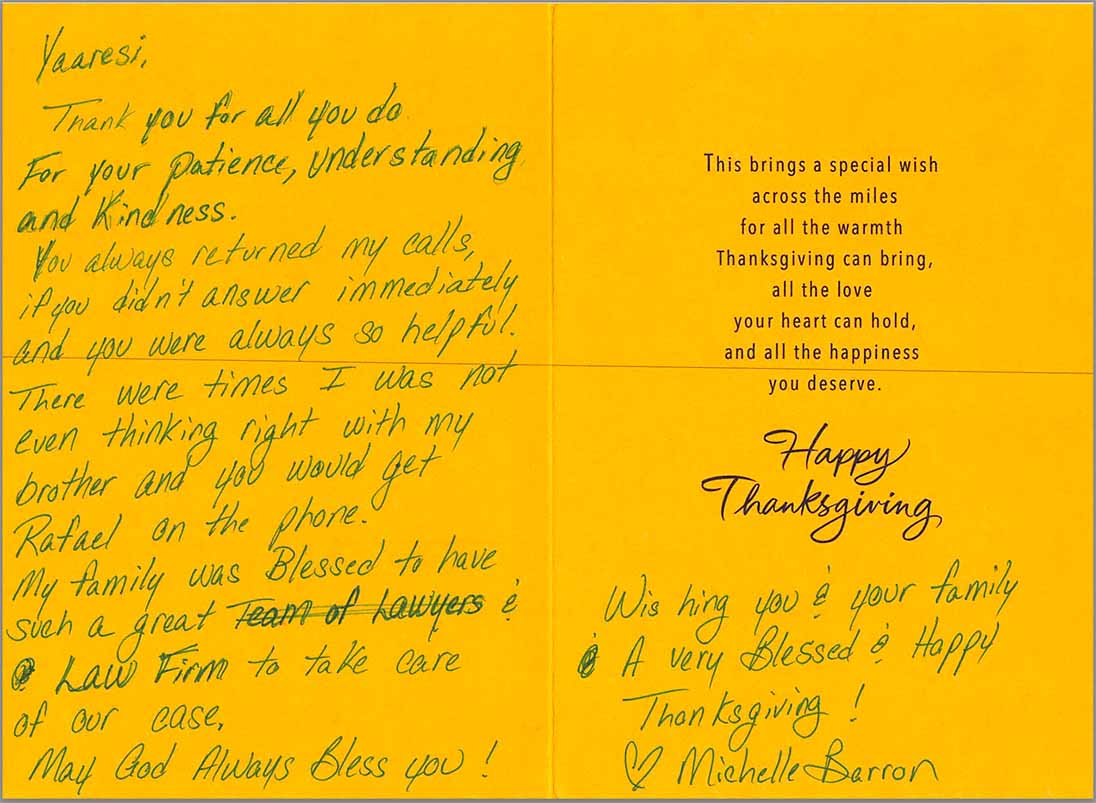 Yaaresi,
Thank you for all you do.
For your patience, understanding
and Kindness.
You always returned my calls,
if you didn't answer immediately
and you were always so helpful.
There were times I was not
even thinking right with my
brother and you would get
Rafael on the phone.
My family was Blessed to have
such a great Team of Lawyers &
Law Firm to take care
of our case.
May God Always Bless you!
This brings a special wish
across the miles
for all the warmth
Thanksgiving can bring,
all the love
your heart can hold,
and all the happiness
you deserve.
Happy
Thanksgiving
Wishing you & your family
A very Blessed & Happy
Thanksgiving!
♡ Michelle Barron